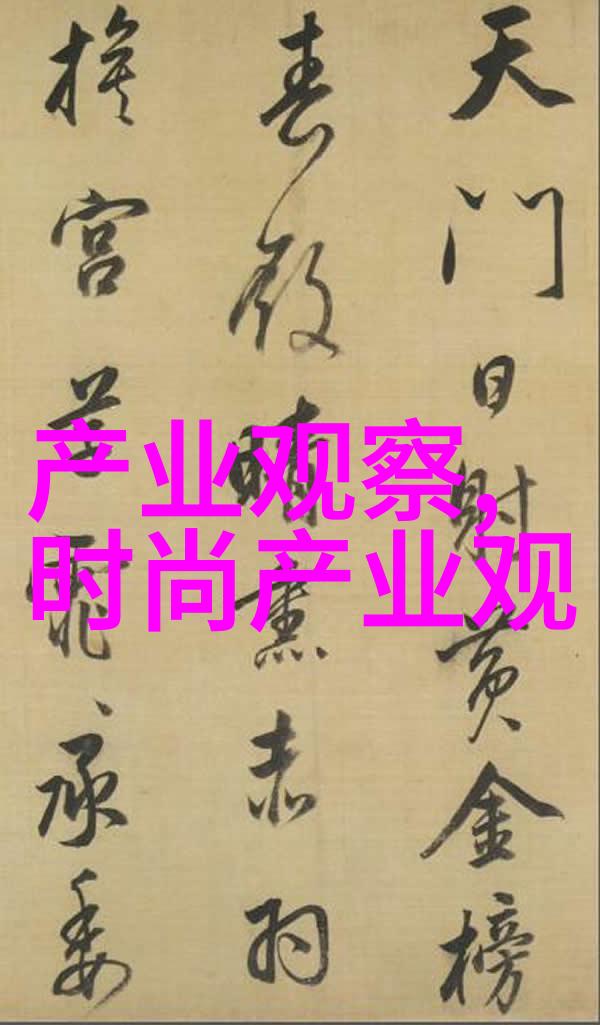 天門日射黄金榜
春殿晴熏赤羽
旗宮草霏〻承委
产业观察,
时尚产业观